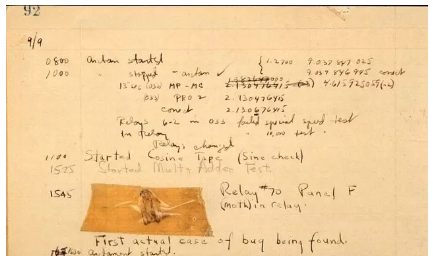 92
9/9
0800 antan started { 1.2700 9.037 847 025
1000 " stopped - antan ✓ 9.037 846 995 conect
13" uc (032) MP - MC 2.130476415 4.615925059(-2)
(033) PRO 2 2.130476415
conect 2.130676415
Relays 6-2 in 033 failed special speed test
In Relay " 10,000 test.
Relays changed
1100 Started Cosine Tape (Sine check)
1525 Started Multy Adder Test.
1545 Relay #70 Panel F
(moth) in relay.
First actual case of bug being found.
antangent started.